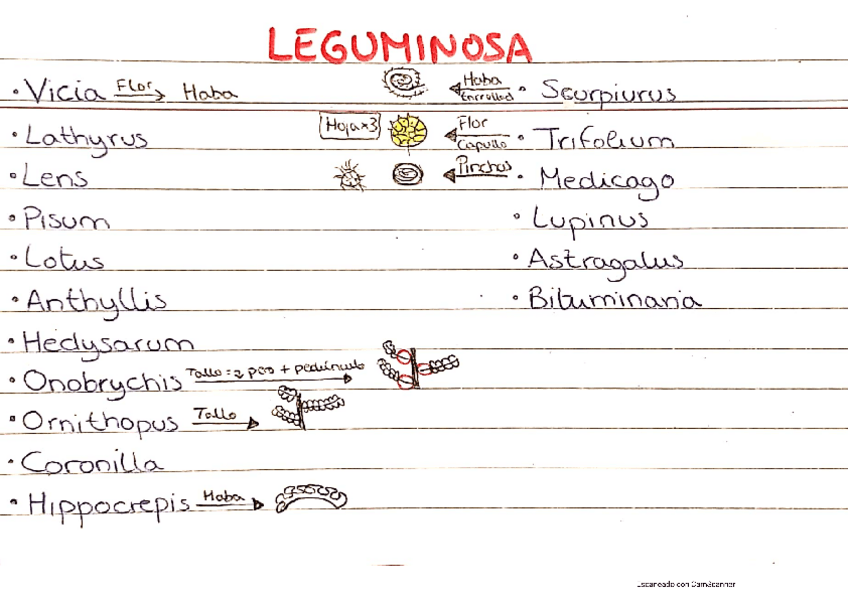 LEGUMINOSA
• Vicia Flor Haba
Haba Enrollad • Scurpiurus
• Lathyrus
Hoja x3 Flor Capullo • Trifolium
• Lens
Pinchos • Medicago
• Pisum
• Lupinus
• Lotus
• Astragalus
• Anthyllis
• Bituminaria
• Hedysarum
• Onobrychis Tallo = 2 peo + pedúnculo
• Ornithopus Tallo
• Coronilla
• Hippocrepis Haba
Escaneado con CamScanner